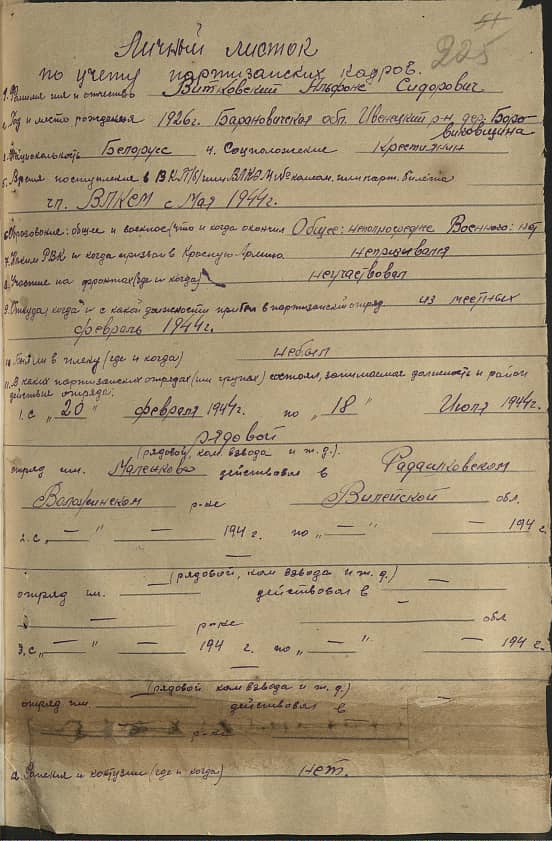 225
Личный листок
по учету партизанских кадров.
1. Фамилия имя и отчество Витковский Альфонс Сидорович
2. Год и место рождения 1926г. Барановичская обл. Ивенецкий р-н дер. Боро-
виковщина
3. Национальность Белорусс 4. Соцположение Крестиянин
5. Время поступление в ВКП(б) или ВЛКСМ и № комсом. или парт. билета
чл. ВЛКСМ с Мая 1944г.
6. Образование: общее и военное (что и когда окончил Общее: неполносреднее Военного: нет
7. Каким РВК и когда призван в Красную Армию непризывался
8. Участие на фронтах (где и когда) неучаствовал
9. Откуда, когда и с какой должности прибыл в партизанский отряд из местных
февраль 1944г.
10. Был ли в плену (где и когда) небыл
11. В каких партизанских отрядах (или групах) состоял, занимаемая должность и район
действие отряда:
1. с "20" февраля 1944г. по "18" Июля 1944г.
рядовой
(рядовой, ком. взвода и т. д.)
отряд им. Маленкова действовал в Радашковском
Воложинском р-не Вилейской обл.
2. с " — " — 194 г. по " — " — 194 г.
—
(рядовой, ком взвода и т. д.)
отряд им. — действовал в —
— р-не — обл
3. с " — " — 194 г. по " — " — 194 г.
—
(рядовой ком взвода и т. д.)
отряд им — действовал в —
р-не
Ранения и контузии (где и когда) нет.